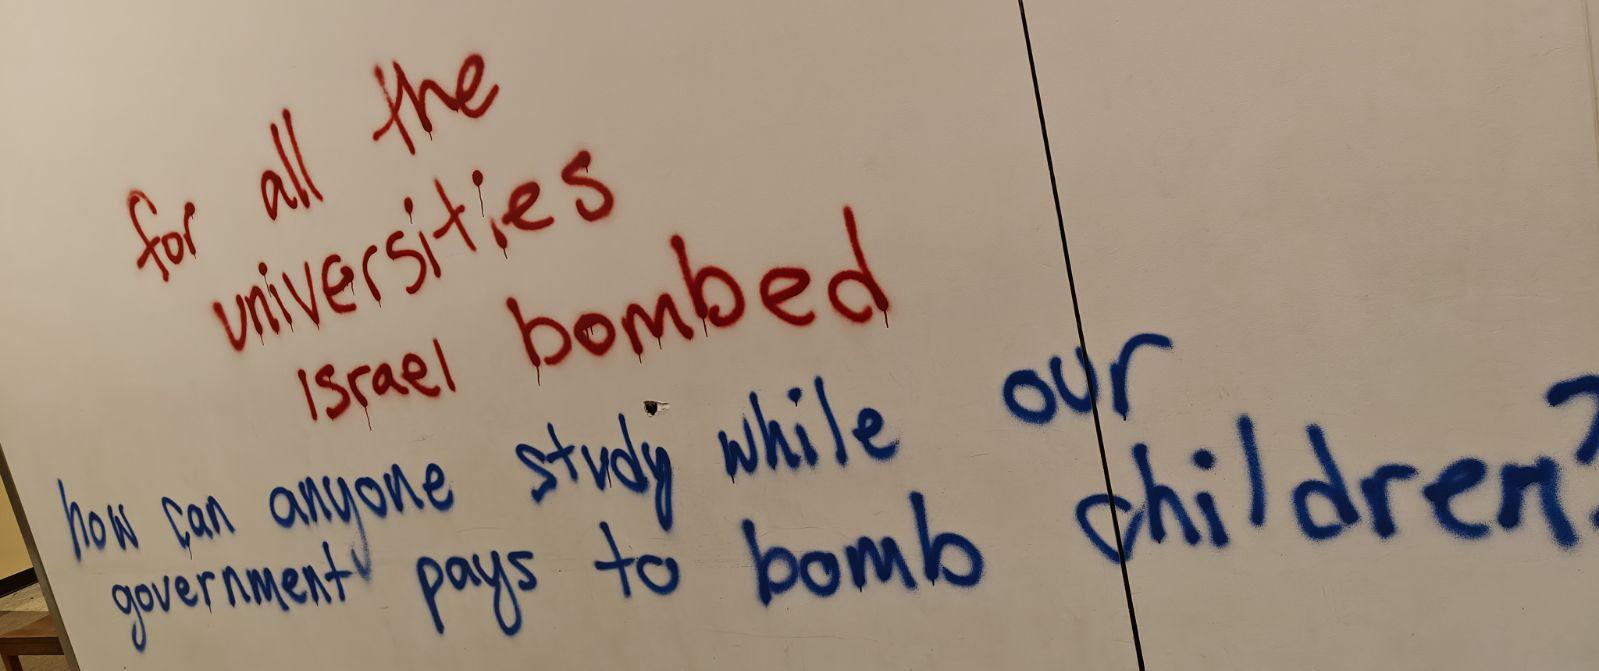 for all the
universities
Israel bombed
how can anyone study while our
government pays to bomb children?